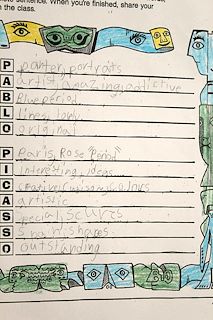 ete sentence. When you're finished, share your
the class.
P painter, portraits
A artist, amazing, addictive
B Blue period
L lines, lady
O original
P Paris, Rose "Period"
I interesting, ideas
C creative, colors
A artistic
S special
S shapes
O outstanding